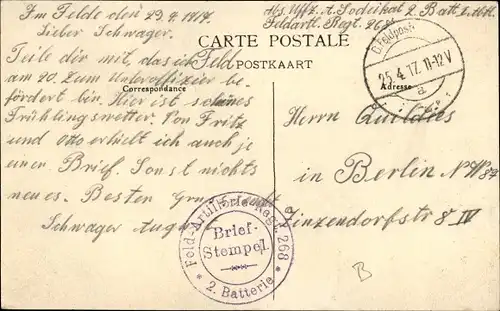 Im Felde den 23.4.1917.
Abs. Uffz. A. Sodeikat 2. Batt.
Feldartl. Regt. 268
Lieber Schwager.
CARTE POSTALE
POSTKAART
Correspondance
Adresse
Teile dir mit, das ich Feld
am 20. zum Unteroffizier be-
fördert bin. Hier ist schönes
Frühlingswetter. Von Fritz
und Otto erhielt ich auch je
einen Brief. Sonst nichts
neues. Besten Gruß
Schwager August
K.D. Feldpost
25.4.17. 11-12 V
a
Herrn
in Berlin N.W 87
Zinzendorfstraße 8 IV
Feld-Artillerie-Regt. 268
Brief-
Stempel
* 2. Batterie *
B